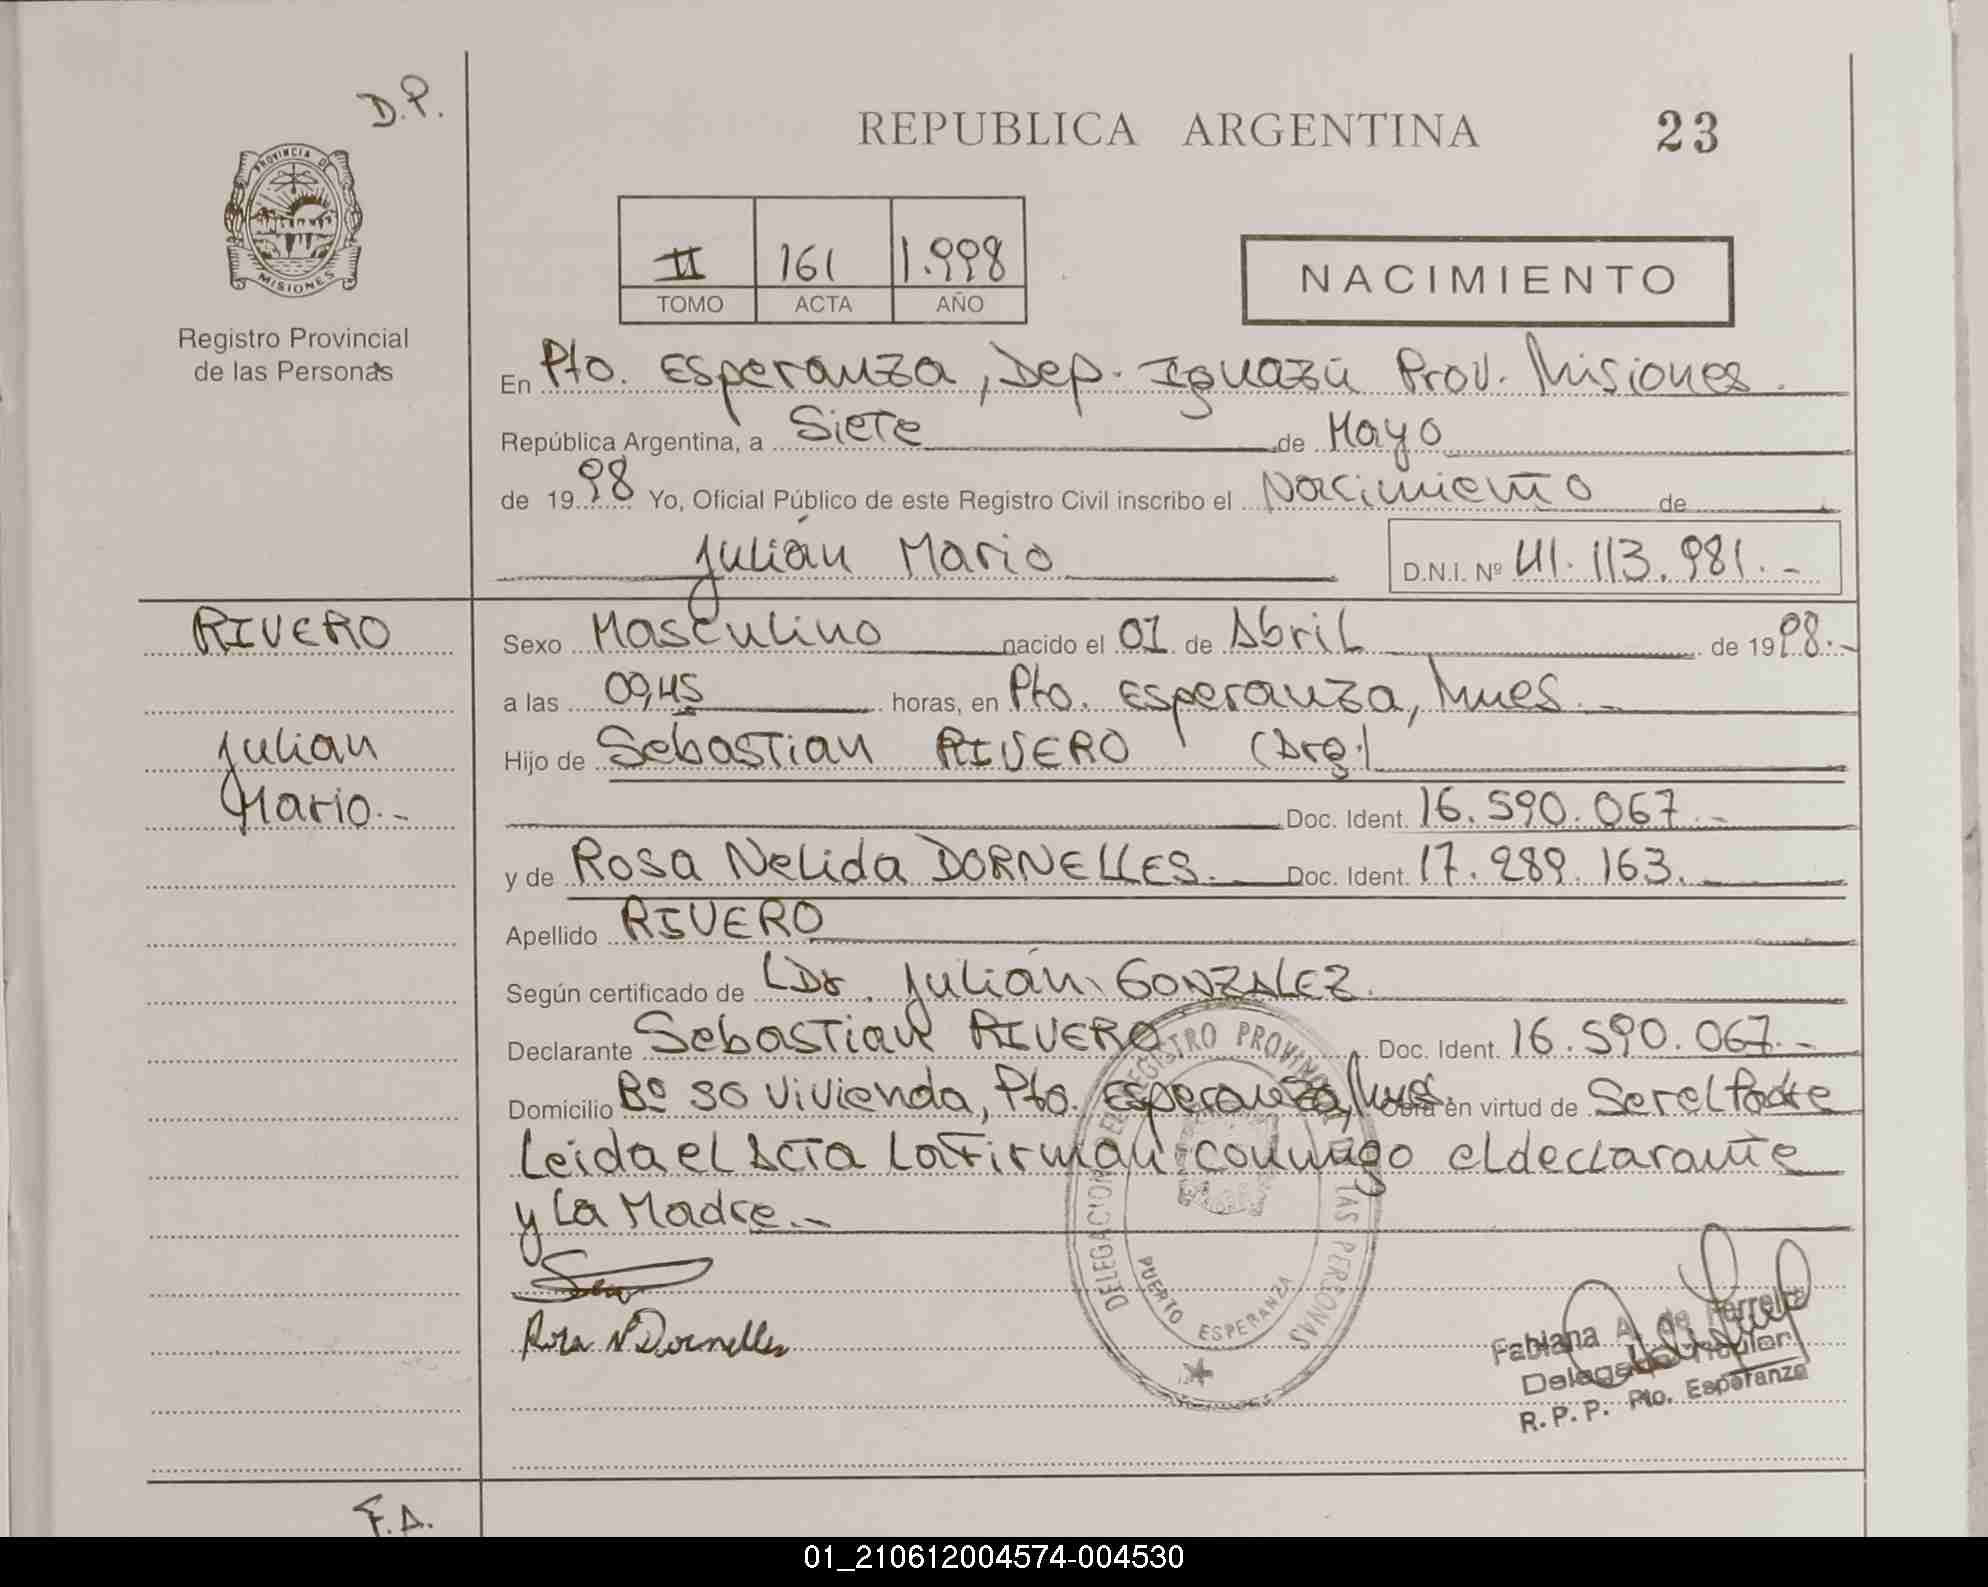 D.P.
REPUBLICA ARGENTINA 23
PROVINCIA DE
MISIONES
Registro Provincial
de las Personas
II 161 1.998
TOMO ACTA AÑO
NACIMIENTO
En Pto. Esperanza, Dep. Iguazú Prov. Misiones.
República Argentina, a Siete de Mayo
de 1998 Yo, Oficial Público de este Registro Civil inscribo el Nacimiento de
Julián Mario D.N.I. Nº 41.113.981.-
RIVERO
Julian
Mario.-
Sexo Masculino nacido el 01 de Abril de 1998.-
a las 09,45 horas, en Pto. Esperanza, Mnes.-
Hijo de Sebastian RIVERO (Arg)
Doc. Ident. 16.590.067.-
y de Rosa Nelida DORNELLES. Doc. Ident. 17.289.163.
Apellido RIVERO
Según certificado de Dr. Julián GONZALEZ.
Declarante Sebastian RIVERO Doc. Ident. 16.590.067.-
Domicilio Bº 50 Vivienda, Pto. Esperanza, Mnes. Obra en virtud de Ser el Padre
Leida el Acta la Firman conmigo el declarante
y la Madre.-
Rosa N Dornelles
DELEGACION REGISTRO PROVINCIAL LAS PERSONAS
PUERTO ESPERANZA
Fabiana A. de Ferreira
Delegada Titular
R.P.P. Pto. Esperanza
F.A.
01_210612004574-004530